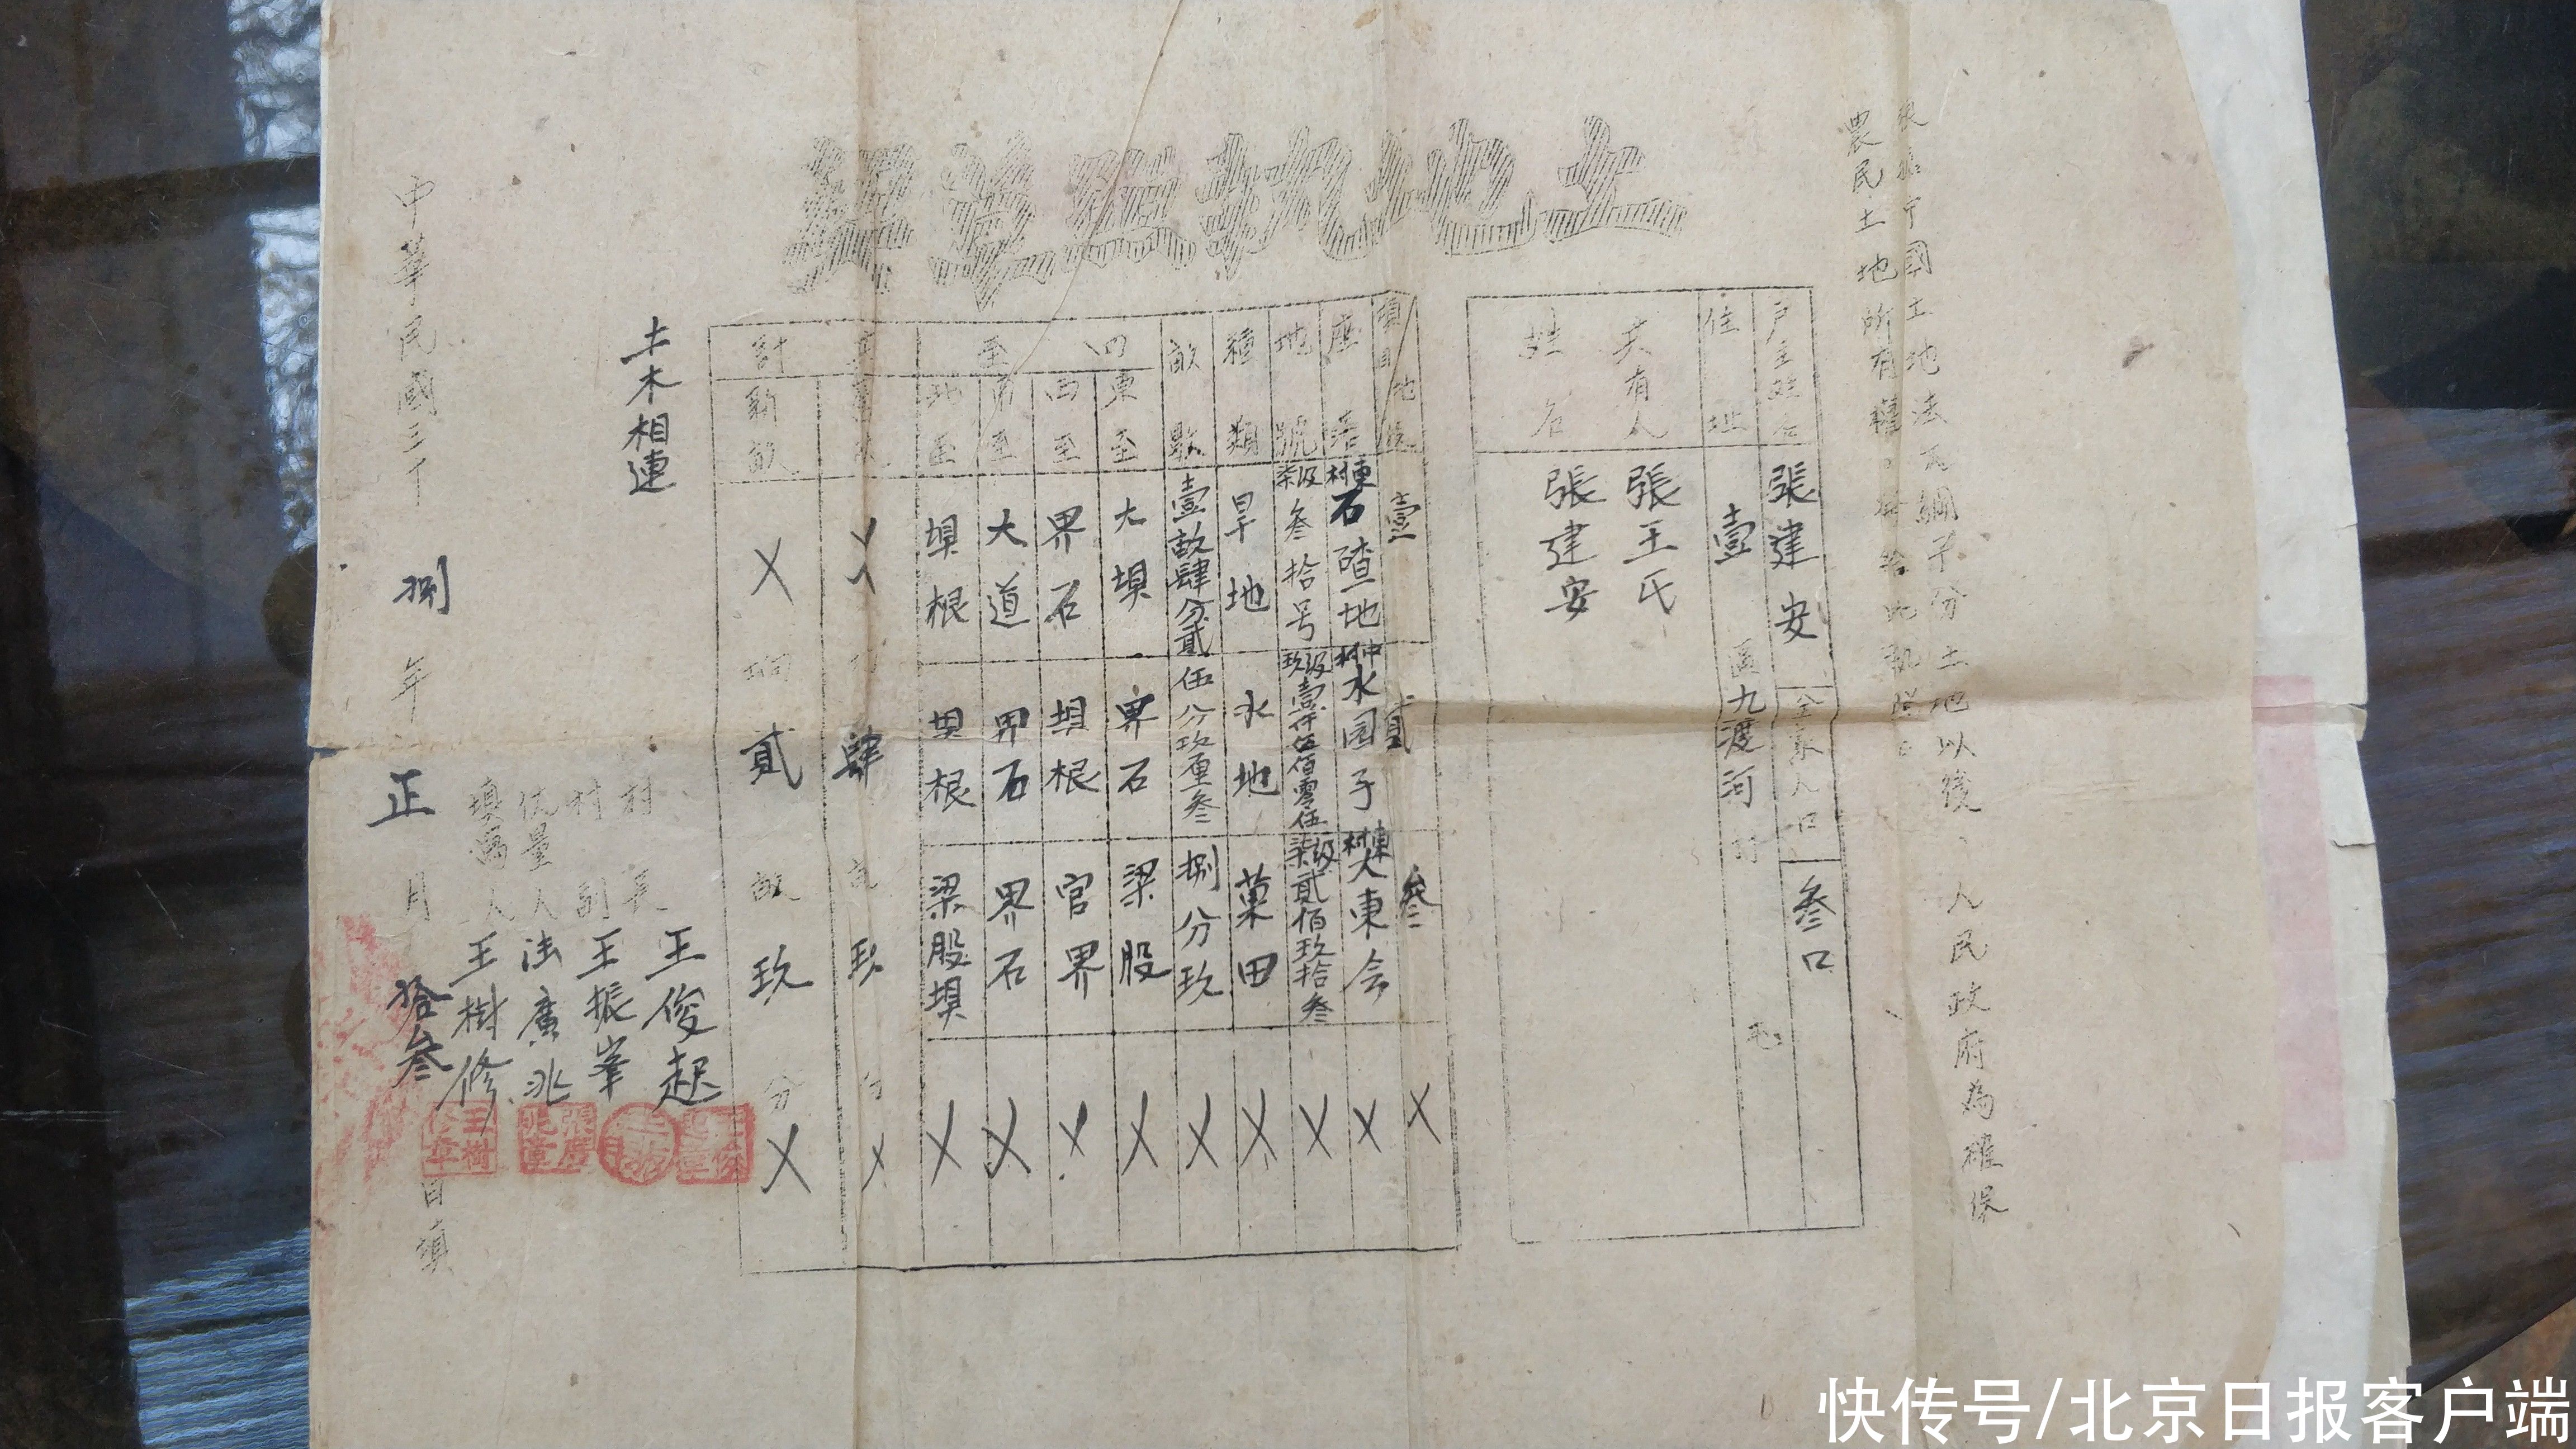 根據中國土地法大綱平分土地以後、人民政府為確保
農民土地所有權。發給此執照。
土地執照
戶主姓名 張建安 全家人口 叁口
住址 壹 區 九渡河 村
共有人 張王氏
姓名 張建安
項目 地 壹 貳 叁 X
座落 東村 石碴地 中村 水园子 東村 大東会 X
地號 柒级 叁拾号 玖级 壹仟伍佰零伍 柒级 貳佰玖拾叁 X
種類 旱地 水地 菓田 X
畝數 壹畝肆分貳 伍分玖厘叁 捌分玖 X
四至
東至 大埧 界石 梁股 X
西至 界石 埧根 官界 X
南至 大道 界石 界石 X
北至 埧根 埧根 梁股埧 X
X 肆 玖 X
計 新畝 X 坰 貳 畝 玖 分 X
土木相連
村長 王俊起
村副 王振峯
仗量人 法廣兆
填寫人 王樹修
張廣兆章
王樹修章
中華民國三十 捌 年 正 月 拾叁 日填
快传号/北京日报客户端